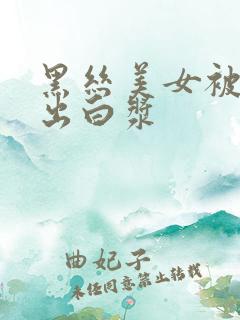 黑丝美女被
出白漿
曲妃子
未经同意禁止转载